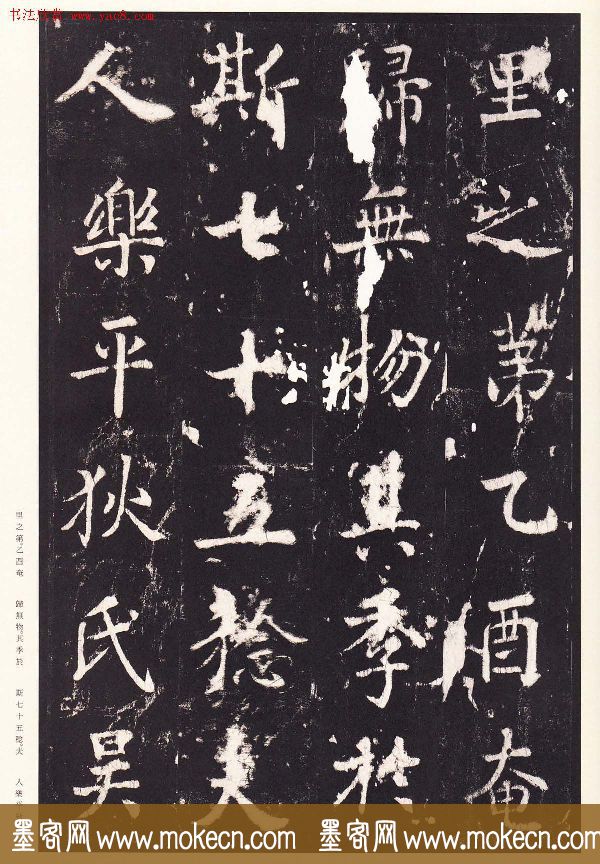 书法欣赏 www.yac8.com
里之苐乙酉奄
歸無物其季於
斯七十五稔夫
人樂平狄氏昊
里之第。乙酉奄 歸無物。其季於 斯七十五稔。夫 人樂
墨客网 www.mokecn.com 墨客网 www.mokecn.com